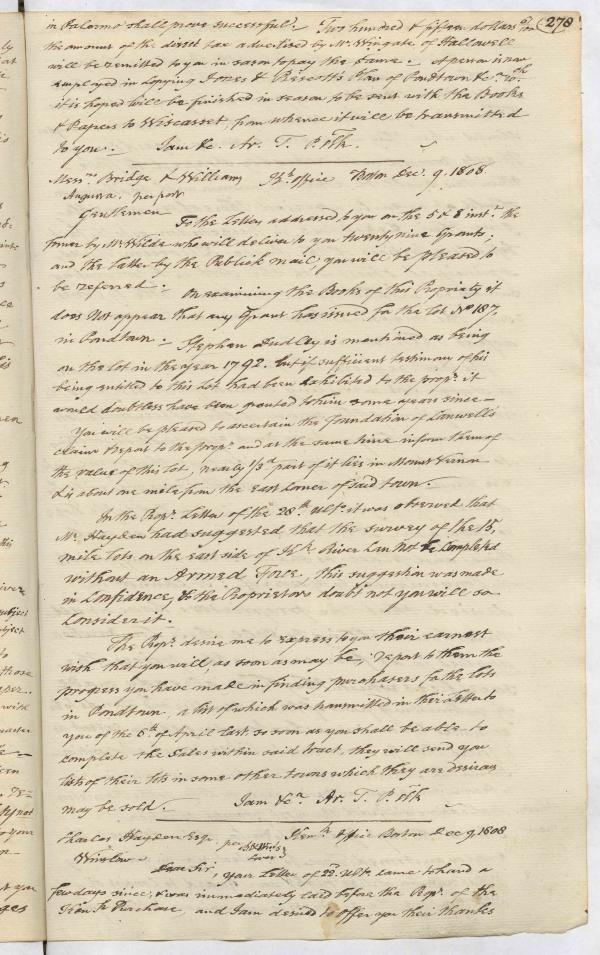 278
in Palermo shall prove successful. Two hundred & fifteen dollars
the amount of the direct tax advertised by Mr. Wingate of Hallowell
will be remitted to you in season to pay the same. A person is now
employed in copying Jones & Prescott's Plan of Pondtown &c
it is hoped will be finished in season to be sent with the Books
& Papers to Wiscasset, from whence it will be transmitted
to you. I am &c. Ar. T. P. Clk.
Messrs. Bridge & Williams Kk. office Boston Decr. 9. 1808.
Augusta. per post
Gentlemen
To the Letters addressed to you on the 5 & 8 instt. the
former by Mr. Wilde who will deliver to you twenty nine Grants;
and the latter by the Publick mail, you will be pleased to
be referred. On examining the Books of this Propriety it
does Not appear that any Grant has issued for the lot No. 187,
in Pondtown. Stephen Dudley is mentioned as being
on the lot in the year 1792. but if sufficient testimony of his
being entitled to this Lot had been exhibited to the Propr. it
would doubtless have been granted to him some years since—
You will be pleased to ascertain the foundation of Lanwell's
claim & report to the Propr. and at the same time inform them of
the value of this lot, nearly 1/3d part of it lies in Mount Vernon
& is about one mile from the East Corner of said town.
In the Propr. Letter of the 28th. Ulto. it was observed that
Mr. Hayden had suggested that the survey of the 15,
mile lots on the east side of Kk. River Can Not be Completed
without an Armed Force, this suggestion was made
in Confidence, & the Proprietors doubt not you will so
Consider it.
The Propr. desire me to express to you their earnest
wish that you will, as soon as may be, report to them the
progress you have made in finding purchasers for the lots
in Pondtown, a list of which was transmitted in their Letter to
you of the 6th of April last. so soon as you shall be able to
complete the Sales within said tract, they will send you
lists of their lots in some other towns which they are desirous
may be sold. I am &ca. Ar. T. P. Clk
Charles Hayden Esqr. per Kenk. Office Boston Dec 9, 1808
Winslow
Dear Sir, your Letter of 22. Ulto. came to hand a
few days since, & was immediately laid before the Propr. of the
Kenk. Purchase, and I am desired to offer you their thanks